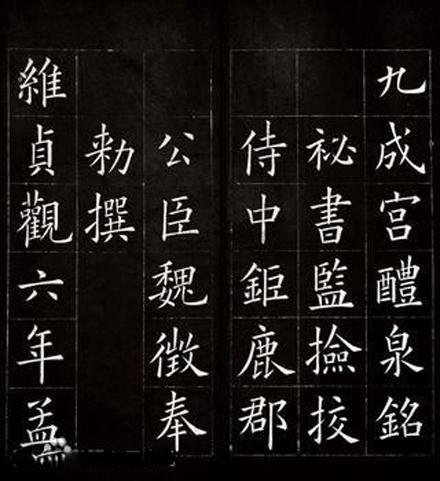 九成宮醴泉銘
祕書監撿挍
侍中鉅鹿郡
公臣魏徵奉
勑撰
維貞觀六年孟